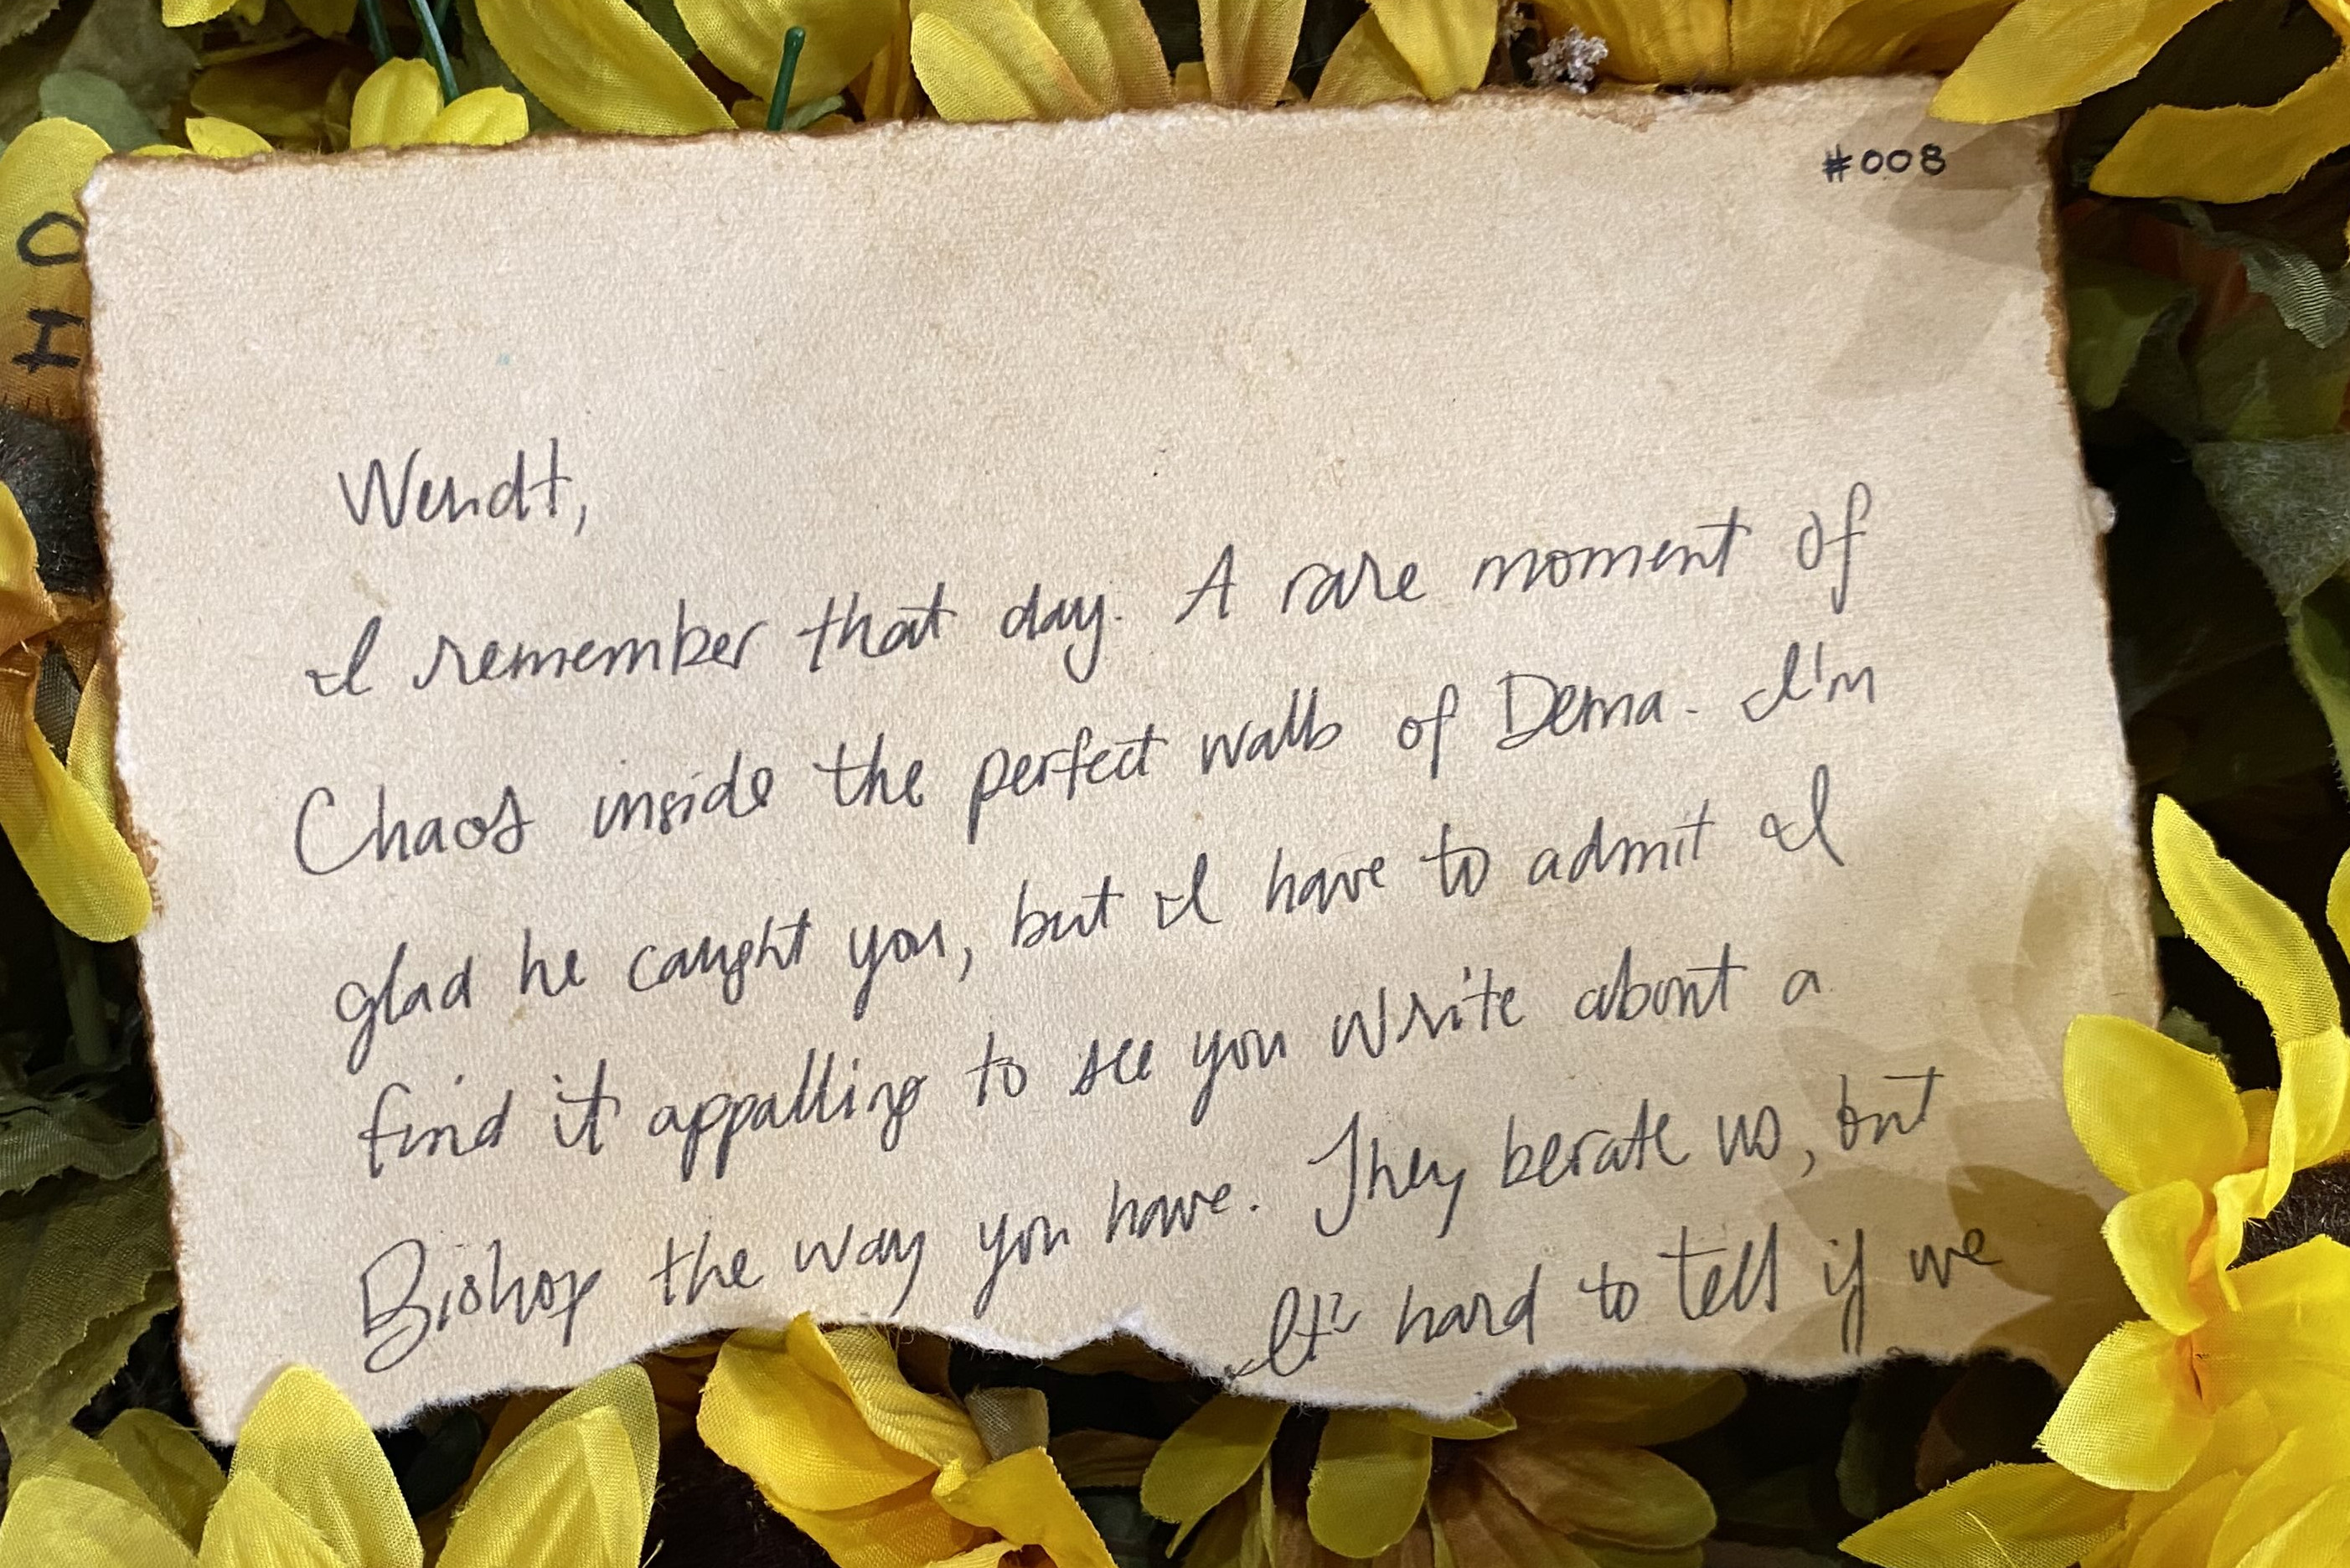 #008
O
I
Wendt,
I remember that day. A rare moment of
Chaos inside the perfect walls of Dema. I'm
glad he caught you, but I have to admit I
find it appalling to see you write about a
Bishop the way you have. They berate us, but
It's hard to tell if we